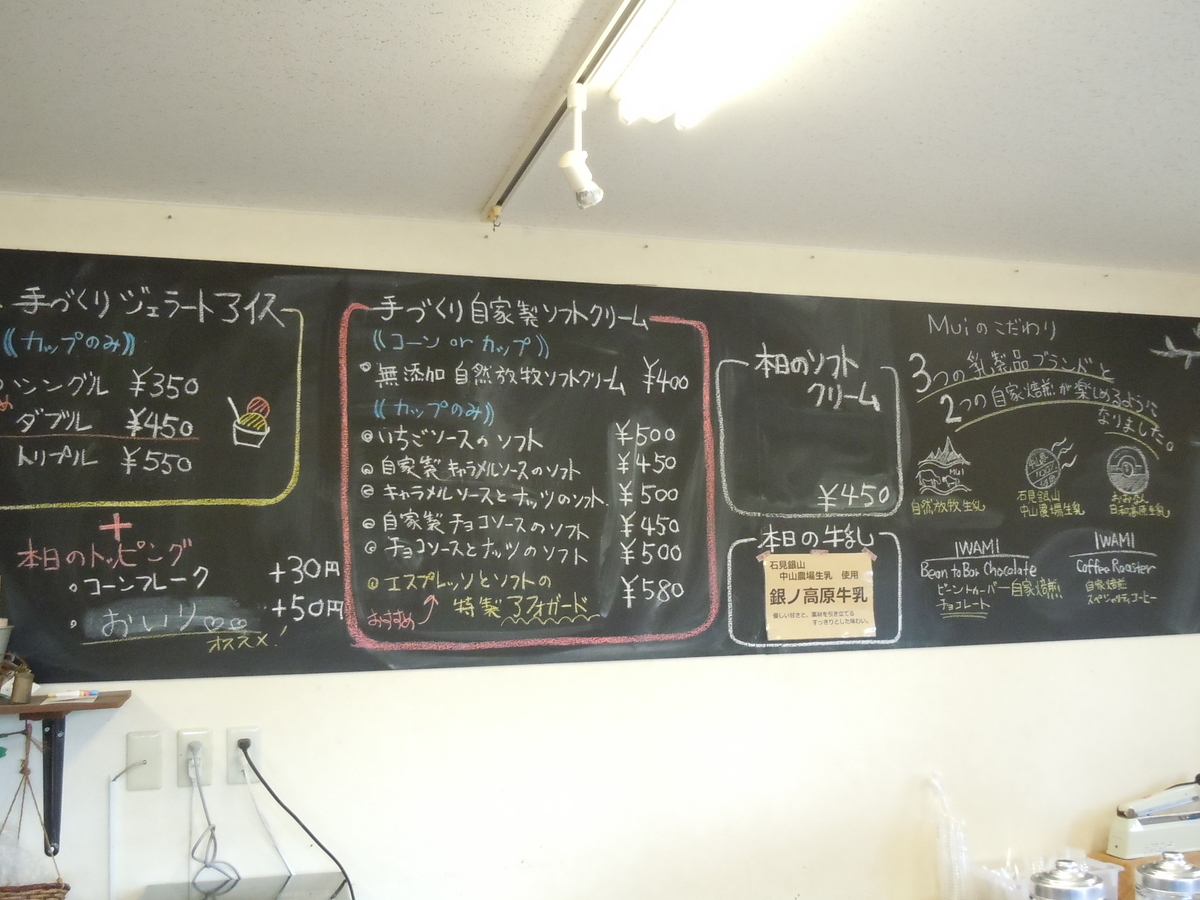 手づくり ジェラートアイス
《カップのみ》
シングル ¥350
ダブル ¥450
トリプル ¥550
+
本日のトッピング
コーンフレーク +30円
おいり♡♡ +50円
オススメ!
手づくり自家製ソフトクリーム
《コーン or カップ》
無添加 自然放牧ソフトクリーム ¥400
《カップのみ》
いちごソースのソフト ¥500
自家製キャラメルソースのソフト ¥450
キャラメルソースとナッツのソフト ¥500
自家製チョコソースのソフト ¥450
チョコソースとナッツのソフト ¥500
エスプレッソとソフトの ¥580
特製アフォガード
おすすめ
本日のソフト
クリーム
¥450
本日の牛乳
石見銀山
中山農場生乳 使用
銀ノ高原牛乳
優しい甘さと、素材を引き立てる
すっきりとした味わい。
Muiのこだわり
3つの乳製品ブランドと
2つの自家焙煎が楽しめるように
なりました。
Mui
自然放牧生乳
石見銀山
中山農場生乳
おおなん
日和高原生乳
IWAMI
Bean to Bar Chocolate
ビーントゥーバー自家焙煎
チョコレート
IWAMI
Coffee Roaster
自家焙煎
スペシャルティコーヒー